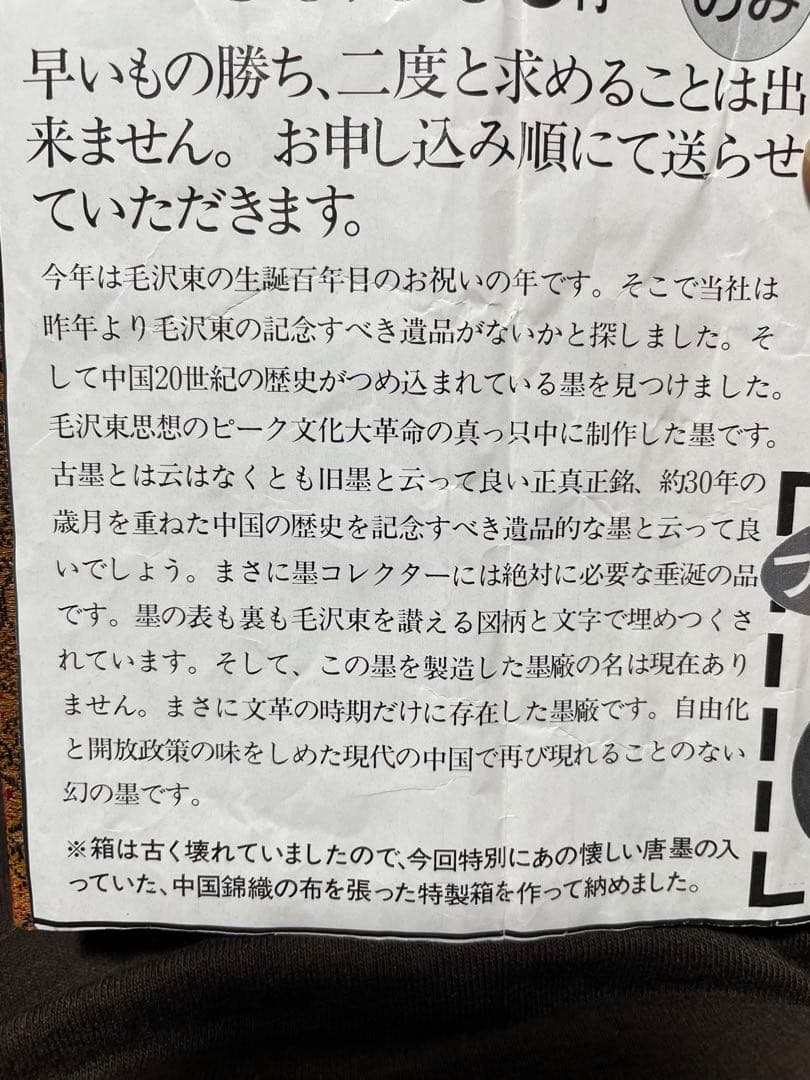 のみ
早いもの勝ち、二度と求めることは出
来ません。お申し込み順にて送らせ
ていただきます。
今年は毛沢東の生誕百年目のお祝いの年です。そこで当社は
昨年より毛沢東の記念すべき遺品がないかと探しました。そ
して中国20世紀の歴史がつめ込まれている墨を見つけました。
毛沢東思想のピーク文化大革命の真っ只中に制作した墨です。
古墨とは云はなくとも旧墨と云って良い正真正銘、約30年の
歳月を重ねた中国の歴史を記念すべき遺品的な墨と云って良
いでしょう。まさに墨コレクターには絶対に必要な垂涎の品
です。墨の表も裏も毛沢東を讃える図柄と文字で埋めつくさ
れています。そして、この墨を製造した墨廠の名は現在あり
ません。まさに文革の時期だけに存在した墨廠です。自由化
と開放政策の味をしめた現代の中国で再び現れることのない
幻の墨です。
※箱は古く壊れていましたので、今回特別にあの懐しい唐墨の入
っていた、中国錦織の布を張った特製箱を作って納めました。